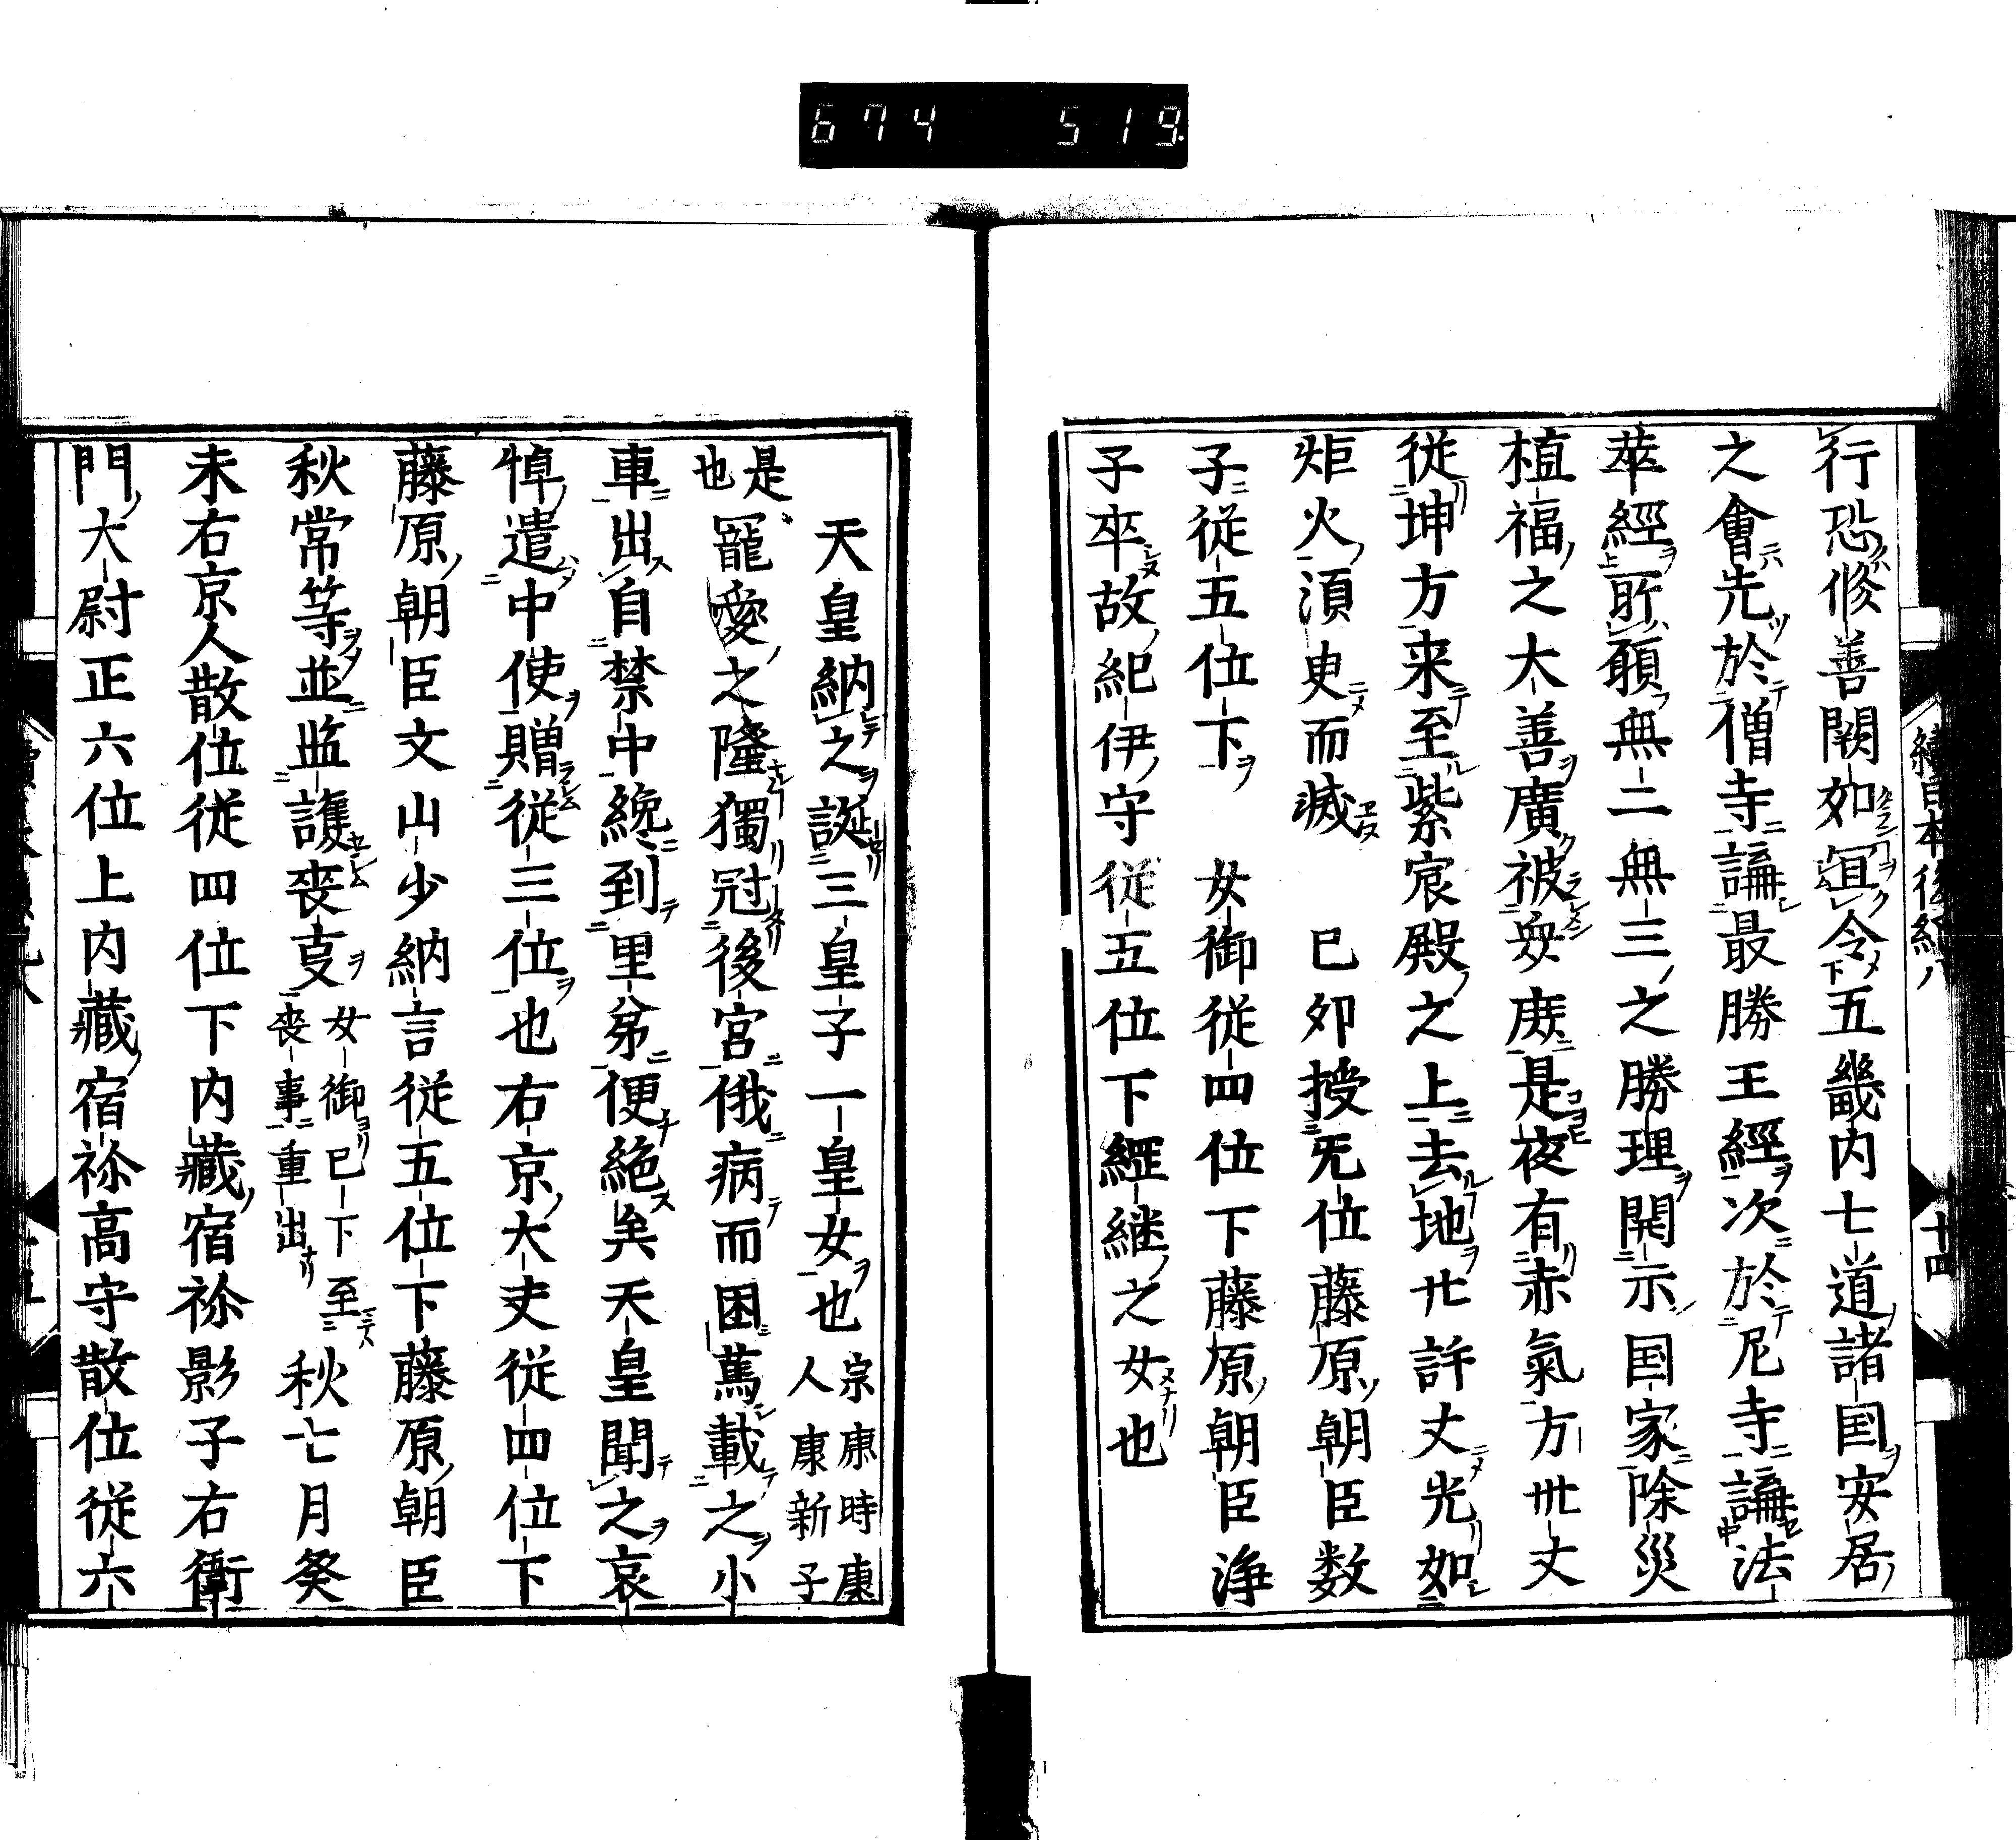 674 519
行恐修善闕如冝令五畿内七道諸国安居
之會先於僧寺講最勝王經次於尼寺講法
華經所願無二無三之勝理開示国家除災
植福之大善廣被与庻是夜有赤氣方卅丈
從坤方来至紫宸殿之上去地廿許丈光如
炬火須臾而滅　已夘授旡位藤原朝臣数
子従五位下　女御從四位下藤原朝臣浄
子卒故紀伊守従五位下繼継之女也
十四
天皇納之誕三皇子一皇女也宗康時康
人康新子
是
也寵愛之隆獨冠後宮俄病而困篤載之小
車出自禁中纔到里第便絶矣天皇聞之哀
悼遣中使贈従三位也右京大夫従四位下
藤原朝臣文山少納言従五位下藤原朝臣
秋常等並監護喪事女御已下至
喪事重出秋七月癸
未右京人散位従四位下内藏宿祢影子右衛
門大尉正六位上内藏宿祢高守散位従六